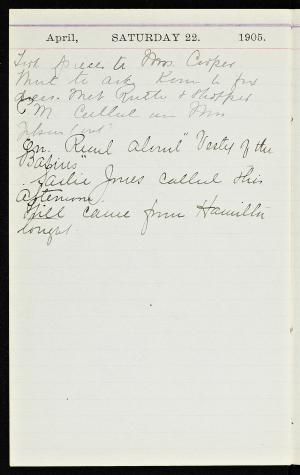 April, SATURDAY 22. 1905.
Took pieces to Mrs. Cooper
Went to ask to fix
dress. Met Ruth & Shopper
M Called on Mrs

Ev. Read aloud "Vesty of the
Basins"
Sadie Jones called this
afternoon.
Will came from Hamilton
tonight.